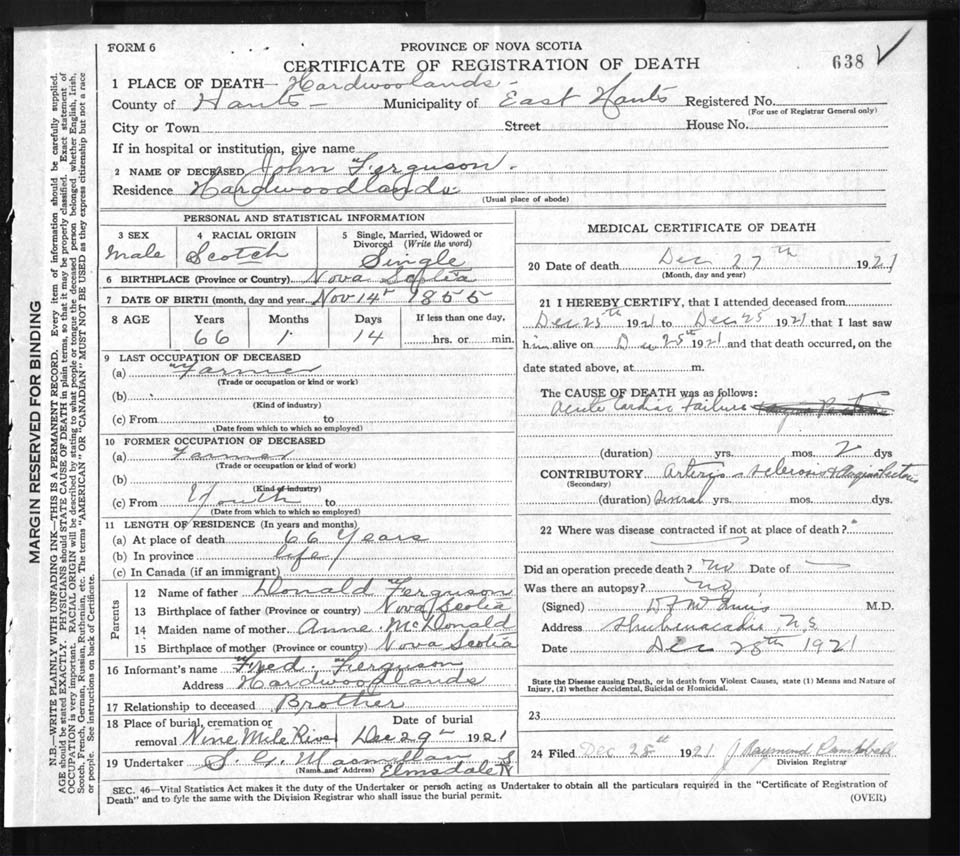 FORM 6
PROVINCE OF NOVA SCOTIA
CERTIFICATE OF REGISTRATION OF DEATH
638
1 PLACE OF DEATH— Hardwoolands
County of Hants Municipality of East Hants Registered No.
(For use of Registrar General only)
City or Town Street House No.
If in hospital or institution, give name
2 NAME OF DECEASED John Ferguson.
Residence Hardwoodlands
(Usual place of abode)
PERSONAL AND STATISTICAL INFORMATION
3 SEX
Male
4 RACIAL ORIGIN
Scotch
5 Single, Married, Widowed or
Divorced (Write the word)
Single
6 BIRTHPLACE (Province or Country) Nova Scotia
7 DATE OF BIRTH (month, day and year Nov 14th 1855
8 AGE
Years
66
Months
1
Days
14
If less than one day,
hrs. or min.
9 LAST OCCUPATION OF DECEASED
(a) Farmer
(Trade or occupation or kind or work)
(b)
(Kind of industry)
(c) From to
(Date from which to which so employed)
10 FORMER OCCUPATION OF DECEASED
(a) Farmer
(Trade or occupation or kind of work)
(b)
(Kind of industry)
(c) From Youth to
(Date from which to which so employed)
11 LENGTH OF RESIDENCE (In years and months)
(a) At place of death 66 Years
(b) In province life
(c) In Canada (if an immigrant)
Parents
12 Name of father Donald Ferguson
13 Birthplace of father (Province or country) Nova Scotia
14 Maiden name of mother Anne McDonald
15 Birthplace of mother (Province or country) Nova Scotia
16 Informant's name Fred. Ferguson
Address Hardwoodlands
17 Relationship to deceased Brother
18 Place of burial, cremation or
removal Nine Mile River
Date of burial
Dec 29th 1921
19 Undertaker S. G.
(Name and Address) Elmsdale N S
MEDICAL CERTIFICATE OF DEATH
20 Date of death Dec 27th 1921
(Month, day and year)
21 I HEREBY CERTIFY, that I attended deceased from
Dec 25th 1921 to Dec 25 1921 that I last saw
him alive on Dec 25th 1921 and that death occurred, on the
date stated above, at m.
The CAUSE OF DEATH was as follows:
Acute Cardiac Failure
(duration) yrs. mos. 2 dys
CONTRIBUTORY Arterio sclerosis & Angina Pectoris
(Secondary)
(duration) Several yrs. mos. dys.
22 Where was disease contracted if not at place of death?
Did an operation precede death? No Date of
Was there an autopsy? No
(Signed) M.D.
Address Shubenacadie N.S.
Date Dec 28th 1921
State the Disease causing Death, or in death from Violent Causes, state (1) Means and Nature of
Injury, (2) whether Accidental, Suicidal or Homicidal.
23
24 Filed Dec 28th 1921 J Raymond
Division Registrar
SEC. 46—Vital Statistics Act makes it the duty of the Undertaker or person acting as Undertaker to obtain all the particulars required in the "Certificate of Registration of
Death" and to fyle the same with the Division Registrar who shall issue the burial permit.
(OVER)
MARGIN RESERVED FOR BINDING
N.B.—WRITE PLAINLY WITH UNFADING INK—THIS IS A PERMANENT RECORD. Every item of information should be carefully supplied.
AGE should be stated EXACTLY. PHYSICIANS should STATE CAUSE OF DEATH in plain terms, so that it may be properly classified. Exact statement of
OCCUPATION is very important. RACIAL ORIGIN will be described by stating to what people or tongue the deceased person belonged, whether English, Irish,
Scotch, French, German, Russian, Ruthenian, etc. The terms "AMERICAN" OR "CANADIAN" MUST NOT BE USED as they express citizenship but not a race
or people. See instructions on back of Certificate.